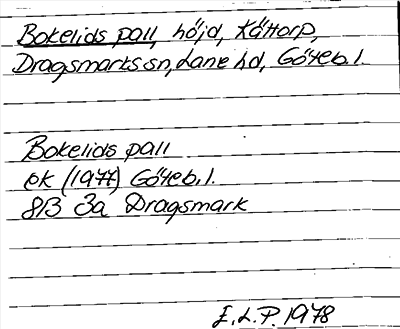 Bokelids pall, höjd, Kåttorp,
Dragsmarks sn, Lane hd, Göteb. l.
Bokelids pall
ek (1977) Göteb. l.
8B 3a Dragsmark
E.L.P. 1978